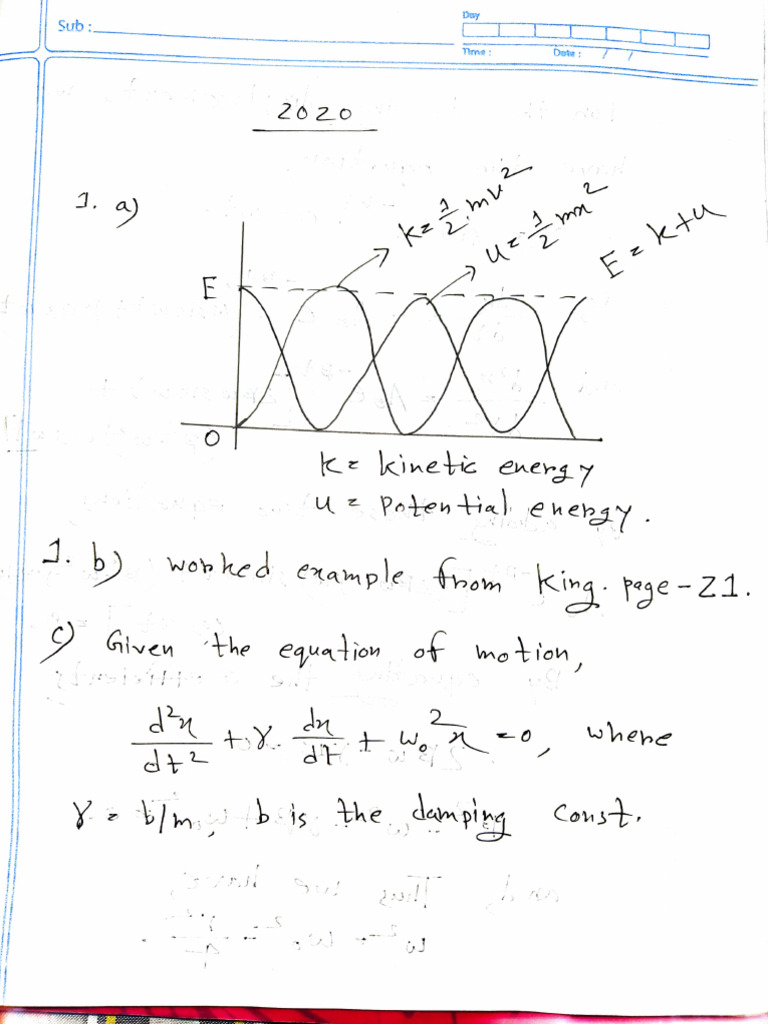 Sub :
Day
Time : Date : / /
2020
1. a)
k = 1/2 mv²
u = 1/2 mx²
E = k+u
E
0
k = kinetic energy
u = potential energy.
1. b) worked example from King. page - 21.
c) Given the equation of motion,
d²x/dt² + γ dx/dt + ω₀² x = 0, where
γ = b/m, b is the damping const.